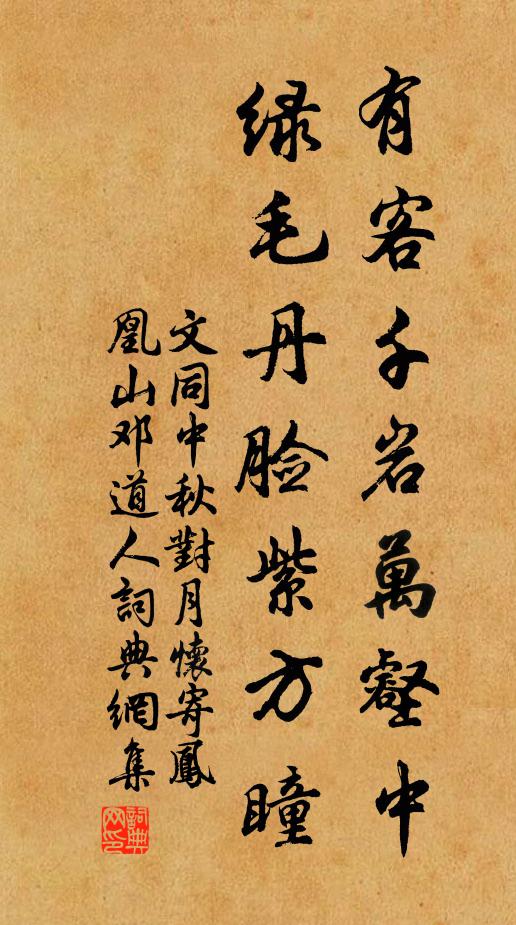 有客千岩萬壑中
绿毛丹脸紫方瞳
文同中秋對月懷寄鳳
凰山邓道人詞典網集
詞典网印